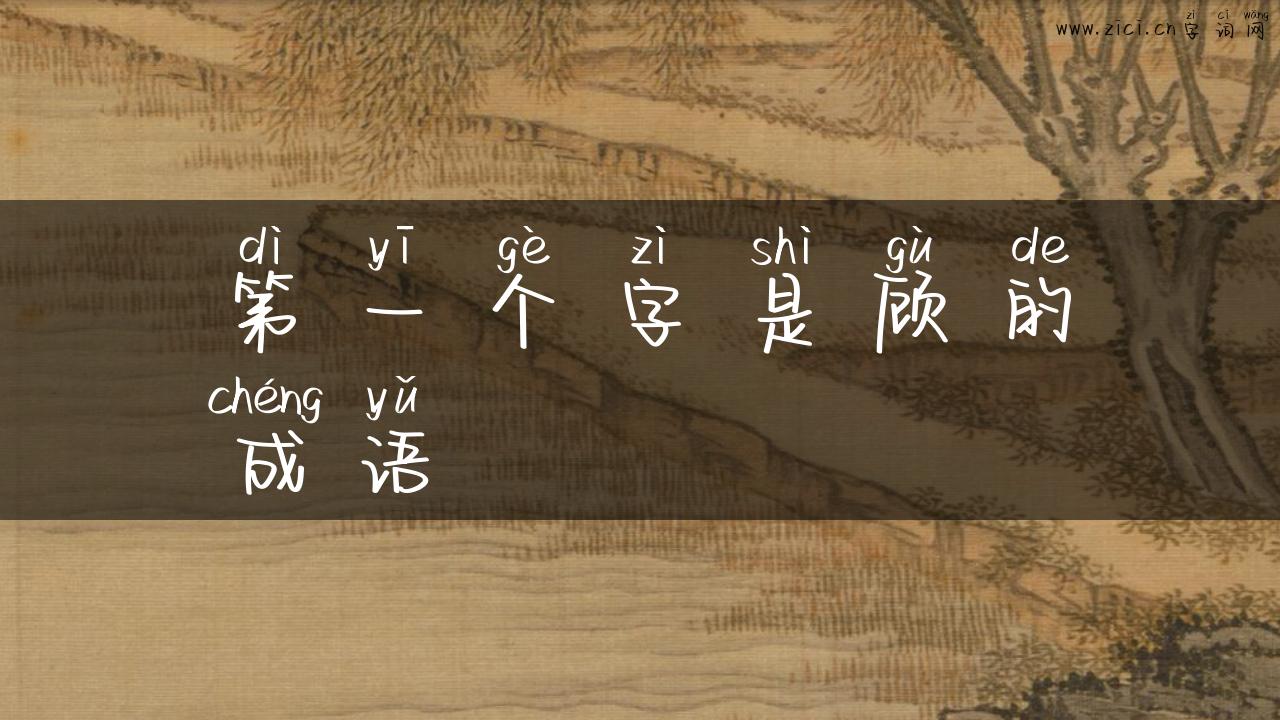 zì cí wǎng
www.zici.cn 字 词 网
dì yī gè zì shì gù de
第 一 个 字 是 顾 的
chéng yǔ
成 语